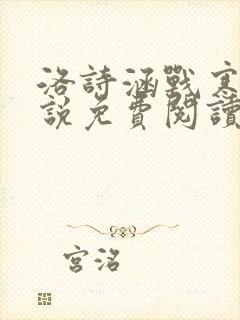 洛詩涵戰寒
說免費閱讀
宮洺